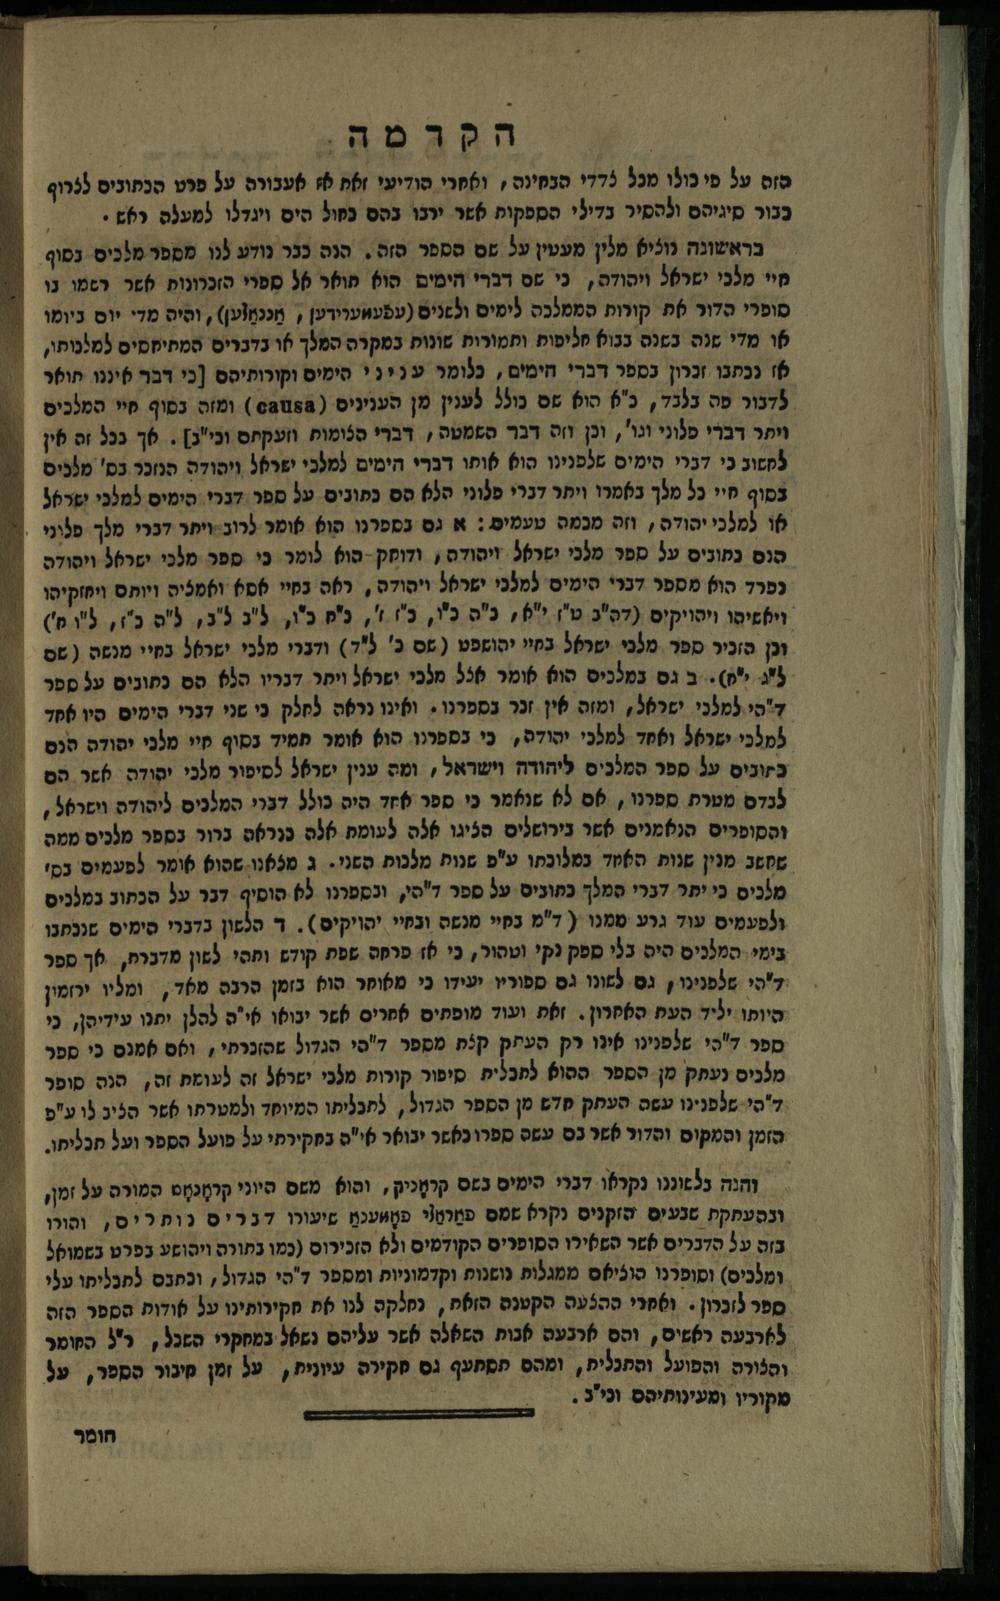 הקדמה
הזה על פי כולו מכל צדדי הבחינה, ואחרי הודיעי זאת אז אעבורה על פרט הכתובים לצרוף
כבור סיגיהם ולהסיר בדילי הספקות אשר ירבו בהם כחול הים ויגדלו למעלה ראש.
בראשונה נוציא מלין מעטין על שם הספר הזה. הנה כבר נודע לנו מספר מלכים בסוף
חיי מלכי ישראל ויהודה, כי שם דברי הימים הוא תואר אל ספרי הזכרונות אשר רשמו בו
סופרי הדור את קורות הממלכה לימים ולשנים (עפעמערידען, אננאלען), והיה מדי יום ביומו
או מדי שנה בשנה בבוא חליפות ותמורות שונות במקרה המלך או בדברים המתיחסים למלכותו,
אז נכתבו זכרון בספר דברי הימים, כלומר עניני הימים וקורותיהם [כי דבר איננו תואר
לדבור פה בלבד, כ"א הוא שם כולל לענין מן הענינים (causa) ומזה בסוף חיי המלכים
ויתר דברי פלוני וגו', וכן וזה דבר השמטה, דברי הצומות וזעקתם וכי"ב]. אך בכל זה אין
לחשוב כי דברי הימים שלפנינו הוא אותו דברי הימים למלכי ישראל ויהודה הנזכר בס' מלכים
בסוף חיי כל מלך באמרו ויתר דברי פלוני הלא הם כתובים על ספר דברי הימים למלכי ישראל
או למלכי יהודה, וזה מכמה טעמים: א גם בספרנו הוא אומר לרוב ויתר דברי מלך פלוני
הנם כתובים על ספר מלכי ישראל ויהודה, ודוחק הוא לומר כי ספר מלכי ישראל ויהודה
נפרד הוא מספר דברי הימים למלכי ישראל ויהודה, ראה בחיי אסא ואמציה ויותם ויחזקיהו
ויאשיהו ויהויקים (דה"ב ט"ז י"א, כ"ה כ"ו, כ"ז ז', כ"ח כ"ו, ל"ב ל"ב, ל"ה כ"ז, ל"ו ח')
וכן הזכיר ספר מלכי ישראל בחיי יהושפט (שם כ' ל"ד) ודברי מלכי ישראל בחיי מנשה (שם
ל"ג י"ח). ב גם במלכים הוא אומר אצל מלכי ישראל ויתר דבריו הלא הם כתובים על ספר
ד"הי למלכי ישראל, ומזה אין זכר בספרנו. ואינו נראה לחלק כי שני דברי הימים היו אחד
למלכי ישראל ואחד למלכי יהודה, כי בספרנו הוא אומר תמיד בסוף חיי מלכי יהודה הנם
כתובים על ספר המלכים ליהודה וישראל, ומה ענין ישראל לסיפור מלכי יהודה אשר הם
לבדם מטרת ספרנו, אם לא שנאמר כי ספר אחד היה כולל דברי המלכים ליהודה וישראל,
והסופרים הנאמנים אשר בירושלים הציגו אלה לעומת אלה כנראה ברור בספר מלכים ממה
שחשב מנין שנות האחד במלוכתו ע"פ שנות מלכות השני. ג מצאנו שהוא אומר לפעמים בס'
מלכים כי יתר דברי המלך כתובים על ספר ד"הי, ובספרנו לא הוסיף דבר על הכתוב במלכים
ולפעמים עוד גרע ממנו (ד"מ בחיי מנשה ובחיי יהויקים). ד הלשון בדברי הימים שנכתבו
בימי המלכים היה בלי ספק נקי וטהור, כי אז פרחה שפת קודש ותהי לשון מדברת, אך ספר
ד"הי שלפנינו, גם לשונו גם ספוריו יעידו כי מאוחר הוא בזמן הרבה מאד, ומליו ירזמון
היותו יליד העת האחרון. זאת ועוד מופתים אחרים אשר יבואו אי"ה להלן יתנו עידיהן, כי
ספר ד"הי שלפנינו אינו רק העתק קצת מספר ד"הי הגדול שהזכרתי, ואם אמנם כי ספר
מלכים נעתק מן הספר ההוא לתכלית סיפור קורות מלכי ישראל זה לעומת זה, הנה סופר
ד"הי שלפנינו עשה העתק חדש מן הספר הגדול, לתכליתו המיוחד ולמטרתו אשר הציב לו ע"פ
הזמן והמקום והדור אשר בם עשה ספרו כאשר יבואר אי"ה בחקירתי על פועל הספר ועל תכליתו.
והנה בלשוננו נקראו דברי הימים בשם קראָניק, והוא משם היוני קראָנאָס המורה על זמן,
ובהעתקת שבעים הזקנים נקרא שמם פאראלי פאָמענא שיעורו דברים נותרים, והורו
בזה על הדברים אשר השאירו הסופרים הקודמים ולא הזכירום (כמו בתורה ויהושע בפרט בשמואל
ומלכים) וסופרנו הוציאם ממגלות נושנות וקדמוניות ומספר ד"הי הגדול, וכתבם לתכליתו עלי
ספר לזכרון. ואחרי ההצעה הקטנה הזאת, נחלקה לנו את חקירותינו על אודות הספר הזה
לארבעה ראשים, והם ארבעה אבות השאלה אשר עליהם נשאל במחקרי השכל, ר"ל החומר
והצורה והפועל והתכלית, ומהם תסתעף גם חקירה עיונית, על זמן חיבור הספר, על
מקוריו ומעינותיהם וכי"ב.
חומר